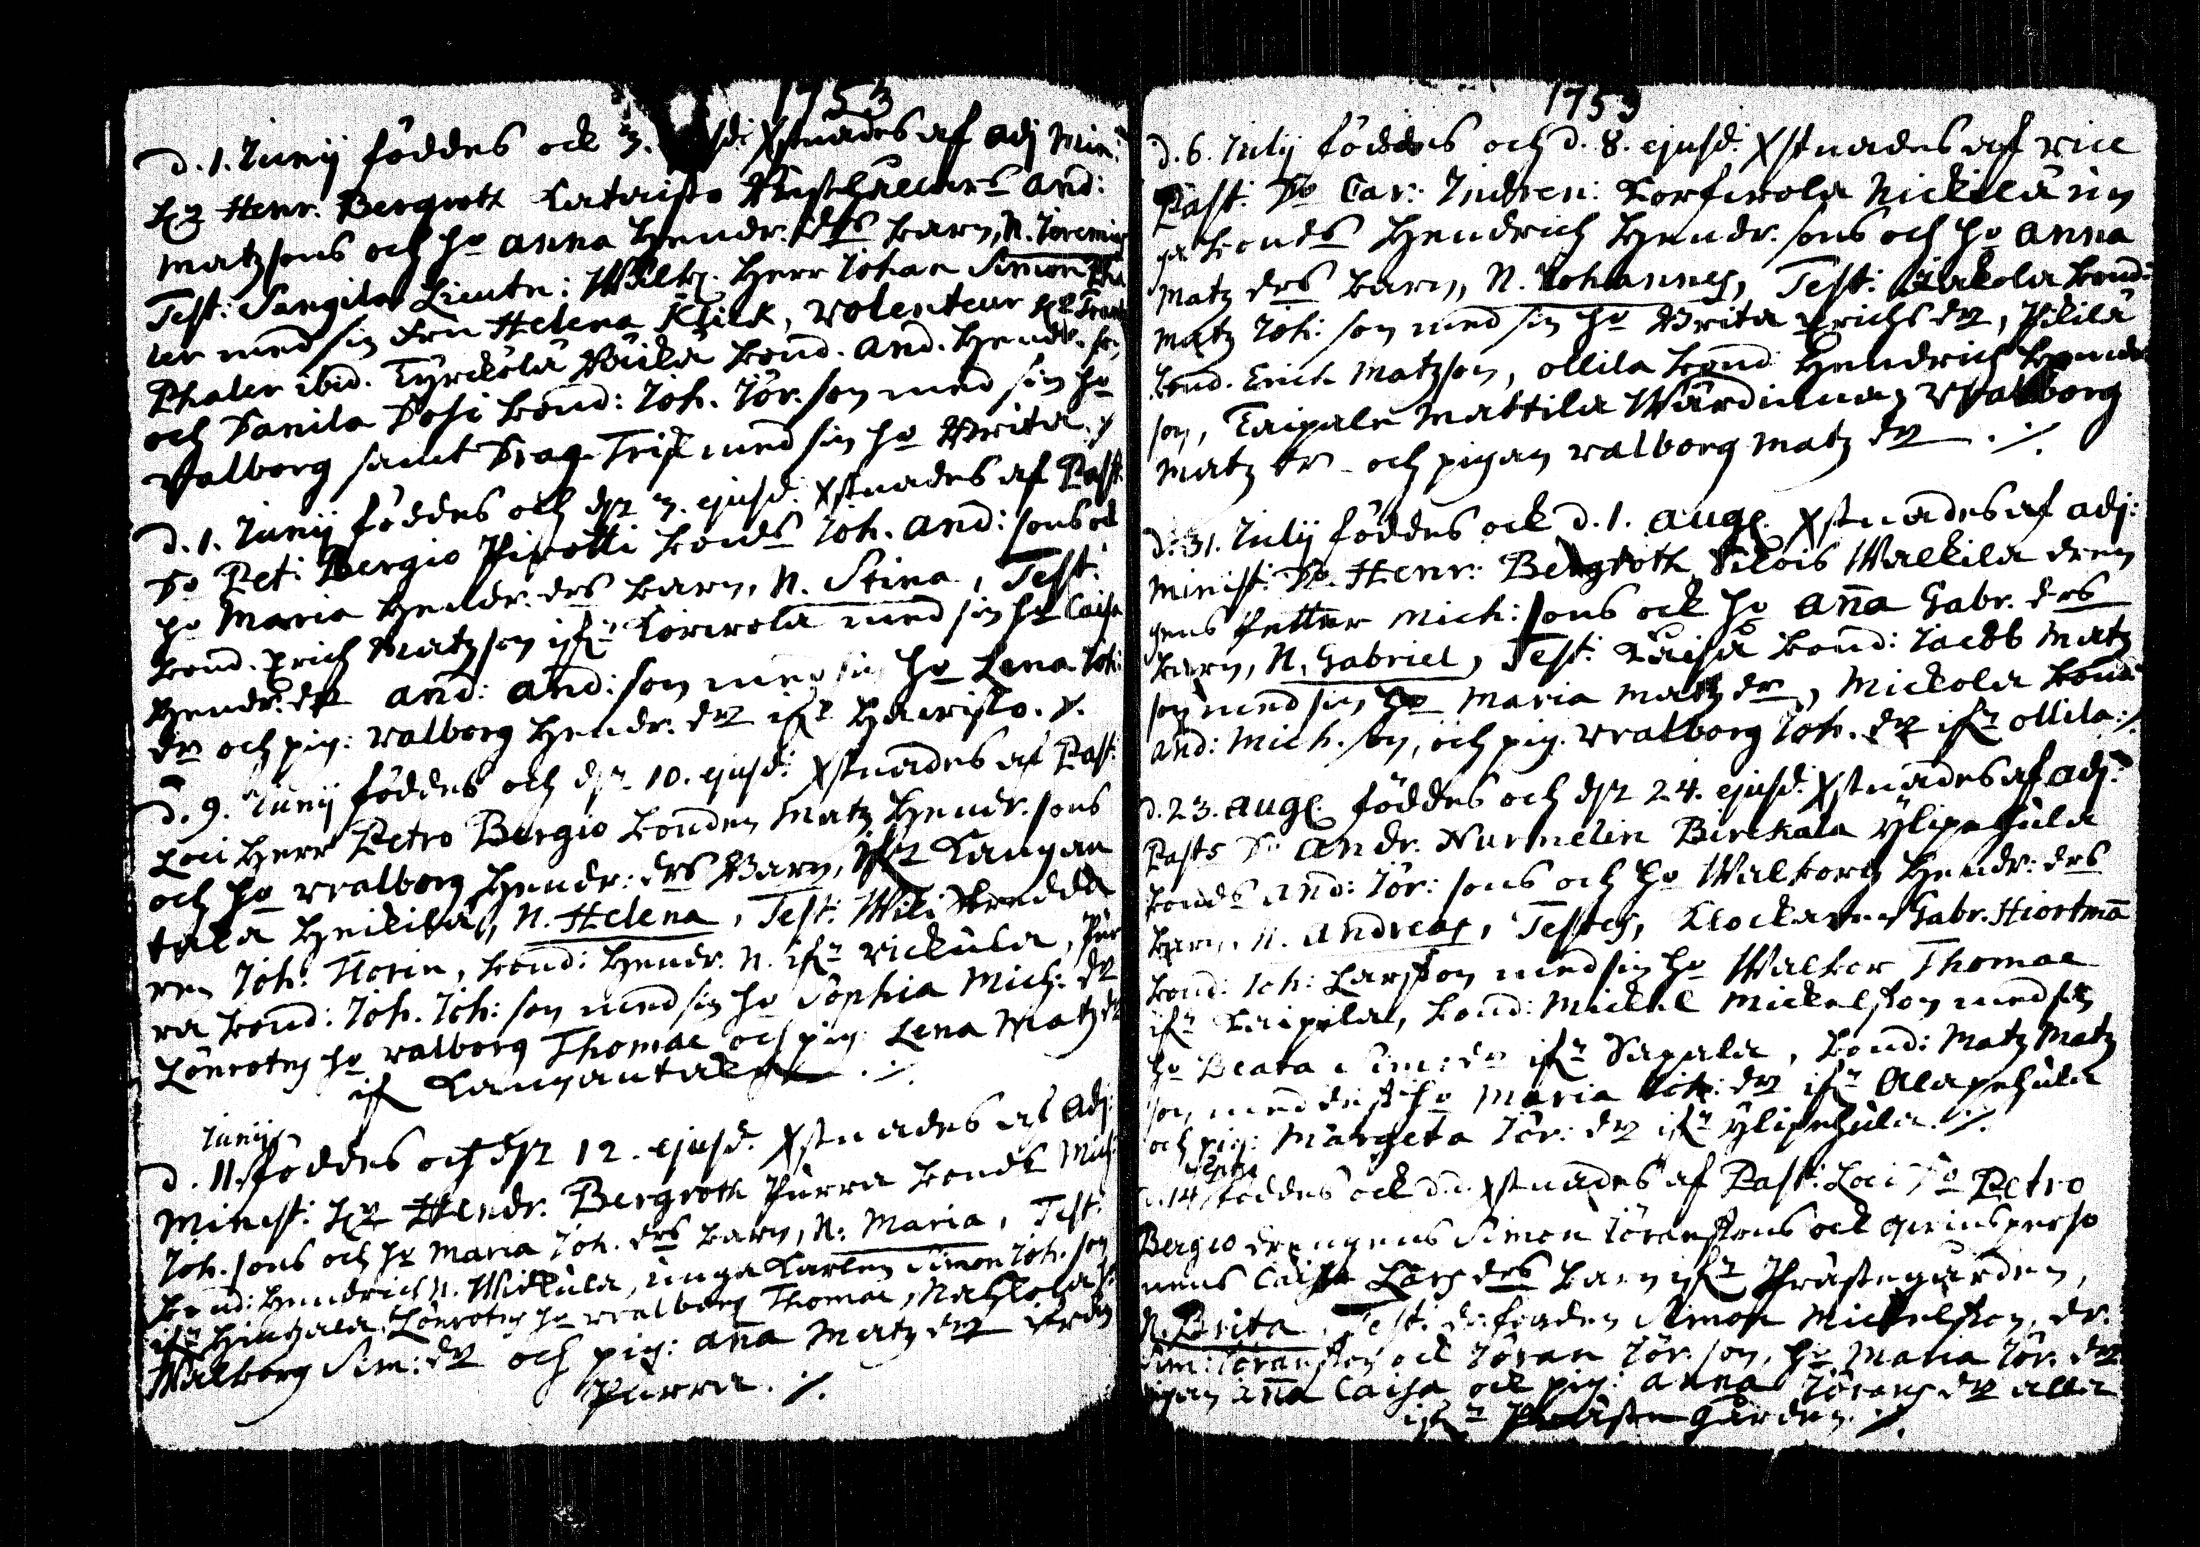 1753
d. 1. Junij föddes och 3. Xstnades af adj Min:
Hr Henr. Bergroth Cataisto And:
Matzsons och ho Anna Hendr. drs barn, N. Jeremias
Test: Sangila Lieutn: Wälb. Herr Johan Simon Pha
ler med sin fru Helena Klick, Volenteur Hr
Phaler ibid. Tyrckölä bond. And. Hendr. son
och Danila Dosi bond: Joh. Jör. son med sin ho
Valborg samt Drag. Trisk med sin ho Brita. ⁒
d. 1. Junij föddes och dn 3. ejusd. Xstnades af Past.
Do Pet: Bergio bonds Joh. And: sons och
ho Maria Hendr. drs barn, N. Stina, Test:
bond. Erich Matzson ifrn med sin ho Caisa
Hendr. dr And: And: son med sin ho Lena Joh:
dr och pig: Valborg Hendr. dr ifrn ⁒
d. 9. Junij föddes och dn 10. ejusd: Xstnades af Past:
Loci Herr Petro Bergio bonden Matz Hendr. sons
och ho Walborg Hendr: drs Barn, ifrn Kangan
tala Heikilä, N. Helena, Test:
ren Joh: Florin, bond: Hendr. N. ifrn Vickula, Pur
ra bond: Joh. Joh: son med sin ho Sophia Mich: dr
Lönroths ho Valborg Thomae och pig: Lena Matz dr
if Kangantaka ⁒
Junij
d. 11. föddes och dn 12. ejusd. Xstnades af Adj:
Minist: Hr Hendr. Bergroth Purra bonds Mich:
Joh. sons och ho Maria Joh. drs barn, N: Maria, Test:
bond: Hendrich N. Wickula, unga Karlen Simon Joh. son
ifrn Hingala, Lönroths ho Walborg Thomae, ho
Walborg Sim: dr och pig: Ana Matz dr ifrån
Purra. ⁒
1753
d. 6. Julij föddes och d. 8. ejusd. Xstnades af vice
Past: Do Car: Indren: Korfwola Nickilä un
ga bonds Hendrich Hendr. sons och ho Anna
Matz drs barn, N. Johannes, Test: bond:
Matz Joh: son med sin ho Brita Erichs dr,
bond. Erich Matzson, Ollila bond Hendrich Hendr
son, Taipale Mattila Wärdinnan Walborg
Matz dr och pigan Valborg Matz dr ⁒
d. 31. Julij föddes och d. 1. Aug. Xstnades af Adj:
Minist: Do Henr: Bergroth Silois Wallila dren
gens Petter Mich: sons och ho Ana Gabr. drs
barn, N. Gabriel, Test: Kaisa bond: Jacob Matz
son med sin ho Maria Matz dr, Mickola bond
And: Mich. son, och pig. Walborg Joh. dr ifrn Ollila. ⁒
d. 23. Aug. föddes och dn 24. ejusd. Xstnades af adj:
Past: Do Andr. Nurmelin Birckala Ylipehula
bonds And: Jör: sons och ho Walborg Hendr: drs
barn, N. Andreas, Testes, Klockaren Gabr. Hiortma
bond: Joh: Larsson med sin ho Walbor Thomae
ifrn Kaipila, bond: Mickel Mickelsson med sin
ho Beata Sim: dr ifrn Sapala, bond: Matz Matz
son med des ho Maria Joh: dr ifrn Alapehula
och pig: Margeta Jör: dr ifrn Ylipehula. ⁒
Septr
d. 14 föddes och d.d. Xstnades af Past: Loci Do Petro
Bergio drengens Simon Jöranssons och qwinsperso
nens Caisa Lars drs barn ifrn Prästegården,
N. Brita, Test: Simon Mickelsson, dr.
Sim: Jöransson och Jöran Jör. son, ho Maria Jör. dr
pigan Ana Caisa och pig: Anna Jörans dr alla
ifrn Prästegården. ⁒